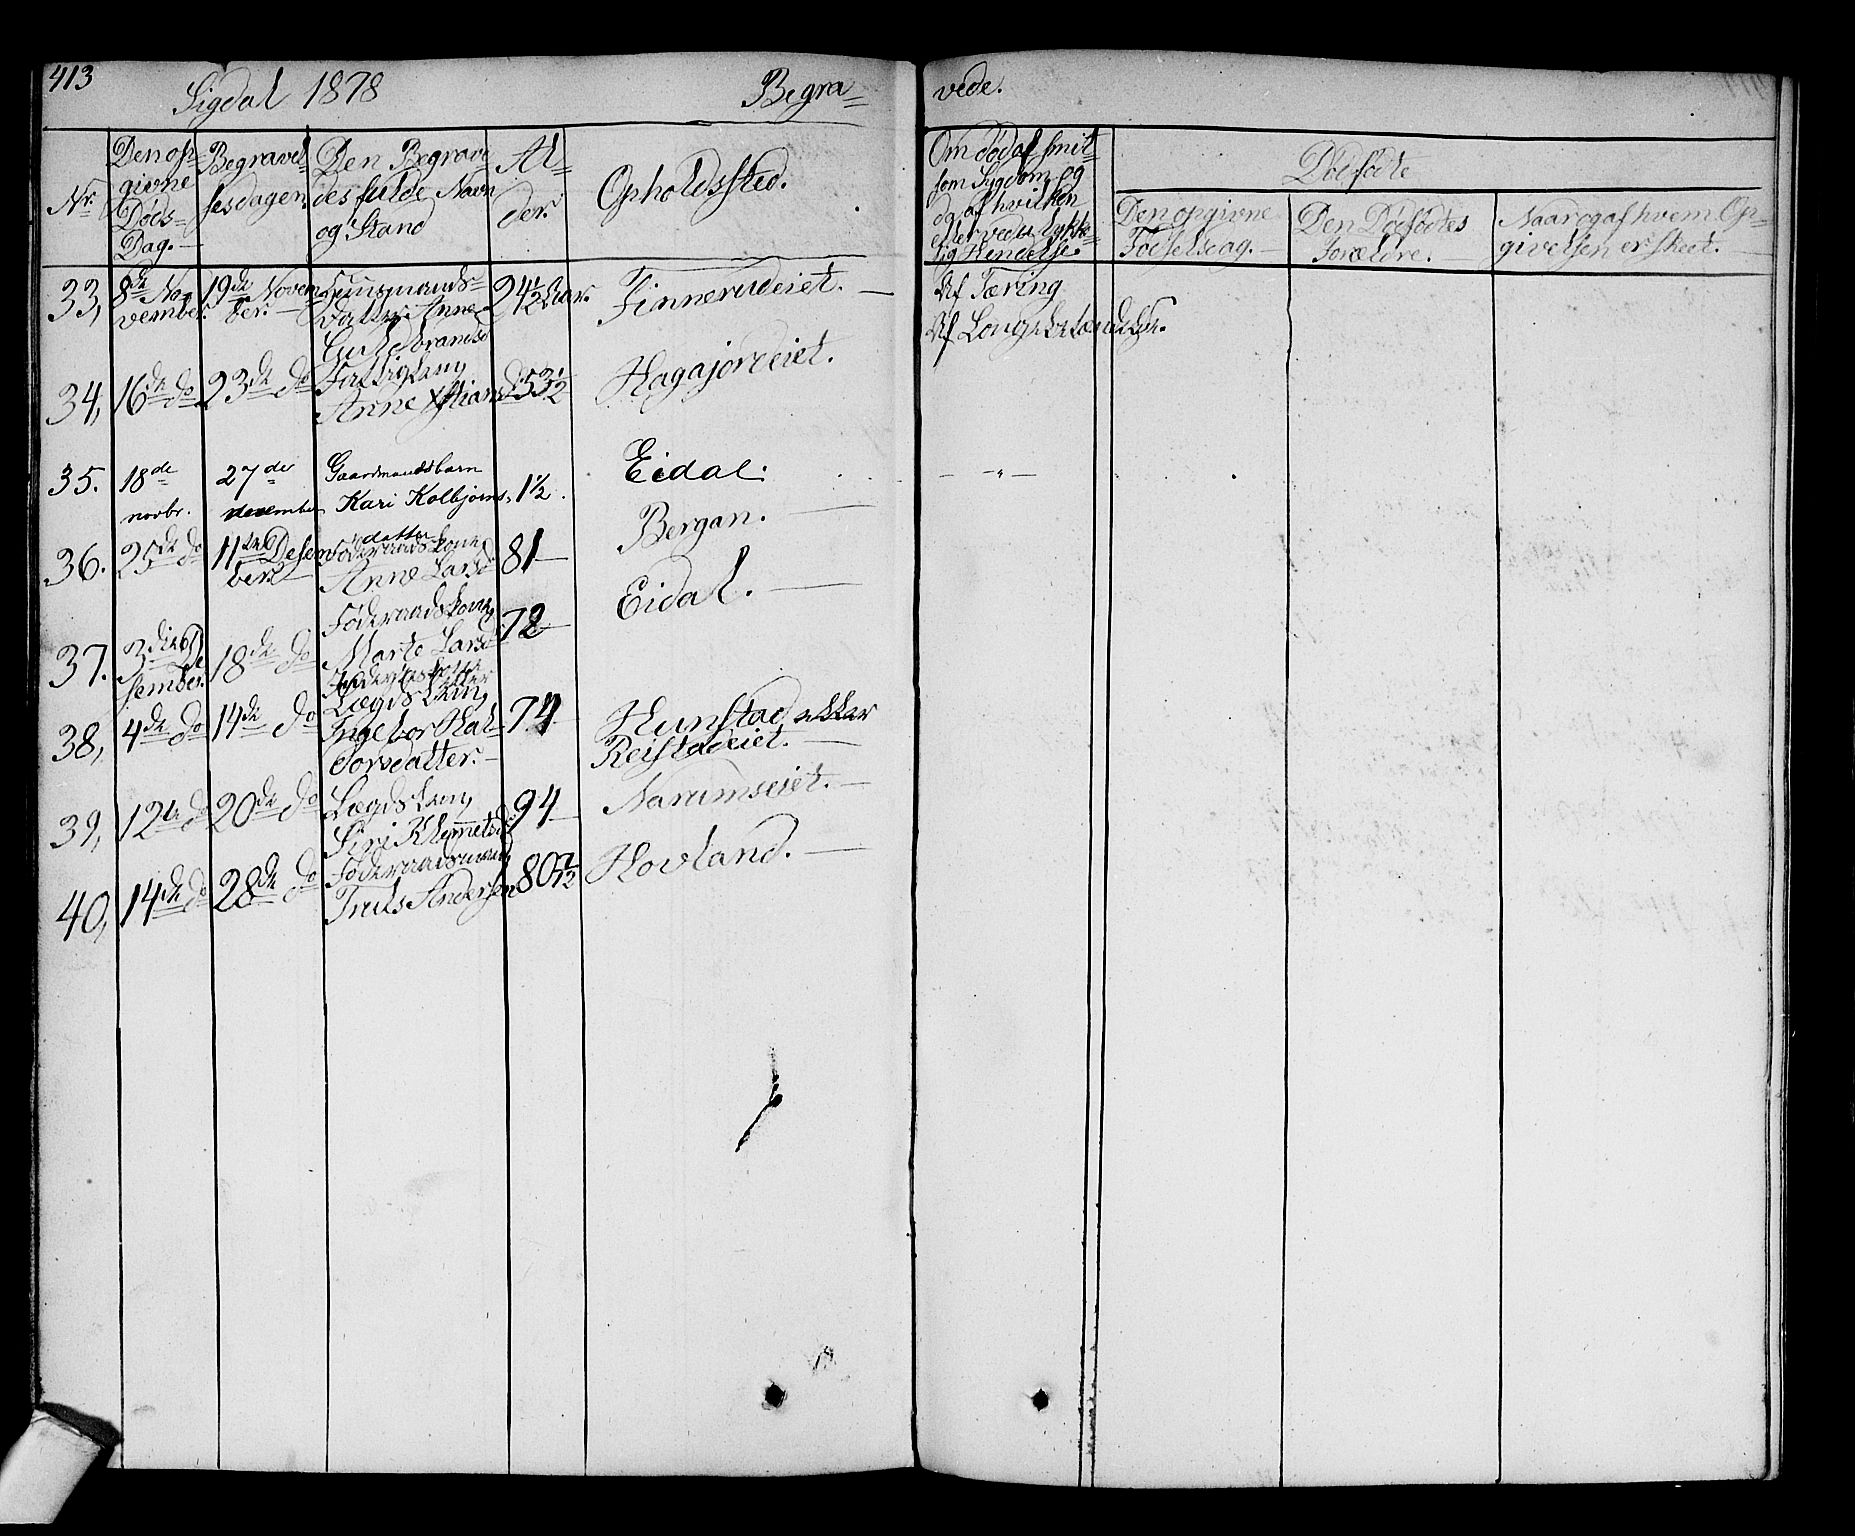 413
Sigdal 1878 Begra=
vede.
Nr.
Den op=
givne
Døds=
Dag.
Begravel
sesdagen.
Den Begrave
des fulde Navn
og Stand
Al=
der.
Opholdssted.
Om död af smit=
som Sygdom og
da af hvilken
eller ved ulykke=
lig Hendelse.
Dödfödte
Den opgivne
Födselsdag.
Den Dödfödtes
Forældre.
Naar og af hvem Op=
givelsen er skeet.
33, 8de No=
vember.
19de Novem
ber.
Huusmands=
Datter Anne
Guldbrandsd
24½ Aar.
Finnerudeiet.
Af Tæring
34, 16de do 23de do
Fattiglem
Anne Xstiansd
53½
Hagajordeiet.
Af Lungebetændelse.
35. 18de
novbr.
27de
december
Gaardmandsbarn
Kari Kolbjørns
datter
1½.
Eidal.
— " —
36. 25de do 11te Desem
ber
Föderaadskone
Anne Larsd
81
Bergan.
37. 3die De
sember.
18de do
Föderaadskone
Marte Larsd
78
Eidal.
38, 4de do 14de do
Lægdslem
Ingebor Hal=
vorsdatter.
74
Hunstad ekker
Reistadeiet.
39, 12te do 20de do
Lægdslem
Siri Klemetsd
94
Narumseiet.
40, 14de do 28de do
Föderaadsmand
Truls Andersen
80½
Hovland.